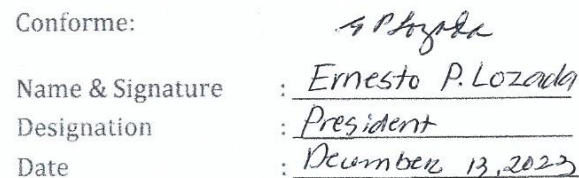 Conforme:
Name & Signature : Ernesto P. Lozada
Designation : President
Date : December 13, 2023